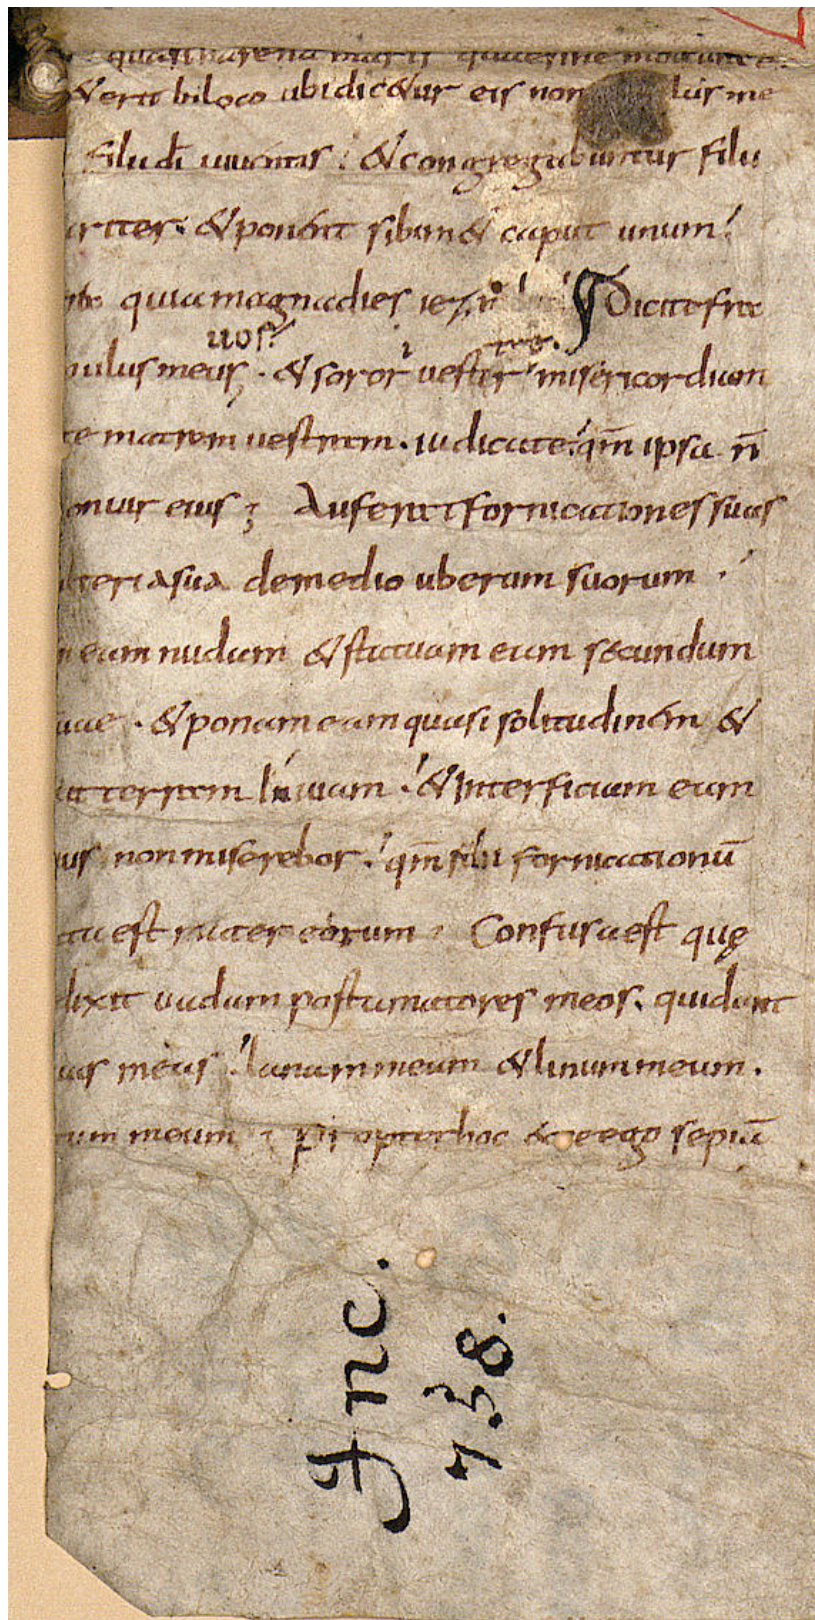 quasi harena maris quae sine
& erit hi loco ubi dic&ur eis non me
filii dī uiuentis : & congregabuntur filii
ariter. & ponent sibim& caput unum :
quia magna dies Dicite frat
uos
pulus meus . & soror uestra misericordiam
te matrem uestram . iudicate : qm̄ ipsa n̄
on uir eius ; Auferat fornicationes suas
lteria sua de medio uberum suorum .
m eam nudam & statuam eam secundum
uae . & ponam eam quasi solitudinem &
ut terram inuiam : & interficiam eam
ius non miserebor : qm̄ filii fornicationū
ata est mater eorum . Confusa est quę
dixit uadam post amatores meos . qui dant
uas meas : lanam meam & linum meum .
um meum ; propter hoc ecce ego sepiā
Inc.
738.